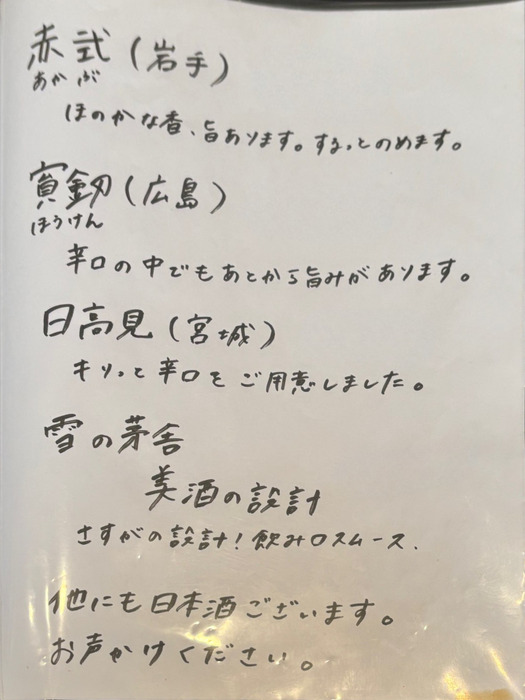 赤武(岩手)
あかぶ
ほのかな香、旨あります。するっとのめます。
寳劔(広島)
ほうけん
辛口の中でもあとから旨みがあります。
日高見(宮城)
キリっと辛口をご用意しました。
雪の茅舎
美酒の設計
さすがの設計!飲み口スムース.
他にも日本酒ございます。
お声かけください。